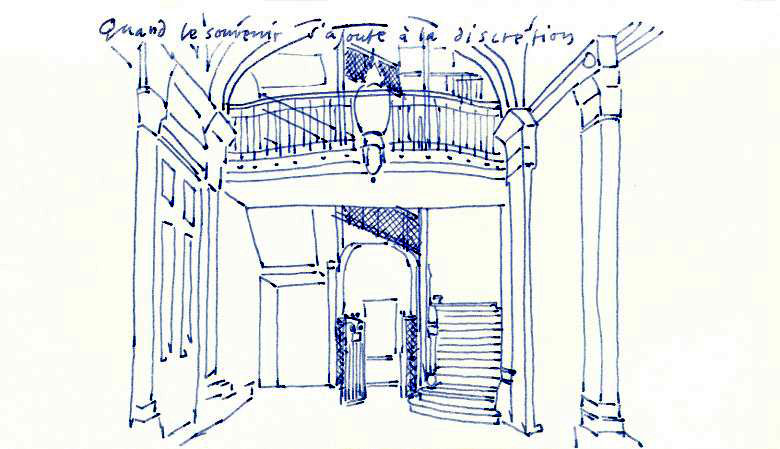 Quand le souvenir s'ajoute à la discrétion